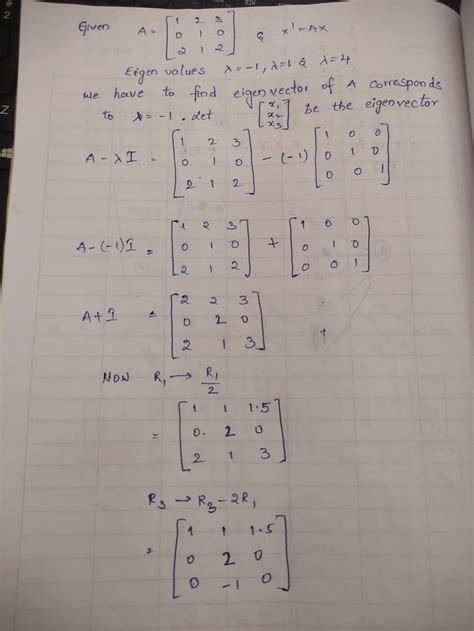 Given A = [1 2 3
0 1 0
2 1 2] & x' = Ax
Eigen values λ = -1, λ = 1 & λ = 4
we have to find eigenvector of A corresponds
to λ = -1. let [x₁
x₂
x₃] be the eigenvector
A - λI = [1 2 3
0 1 0
2 1 2] - (-1) [1 0 0
0 1 0
0 0 1]
A - (-1)I = [1 2 3
0 1 0
2 1 2] + [1 0 0
0 1 0
0 0 1]
A + I = [2 2 3
0 2 0
2 1 3]
NOW R₁ → R₁/2
= [1 1 1.5
0 2 0
2 1 3]
R₃ → R₃ - 2R₁
= [1 1 1.5
0 2 0
0 -1 0]